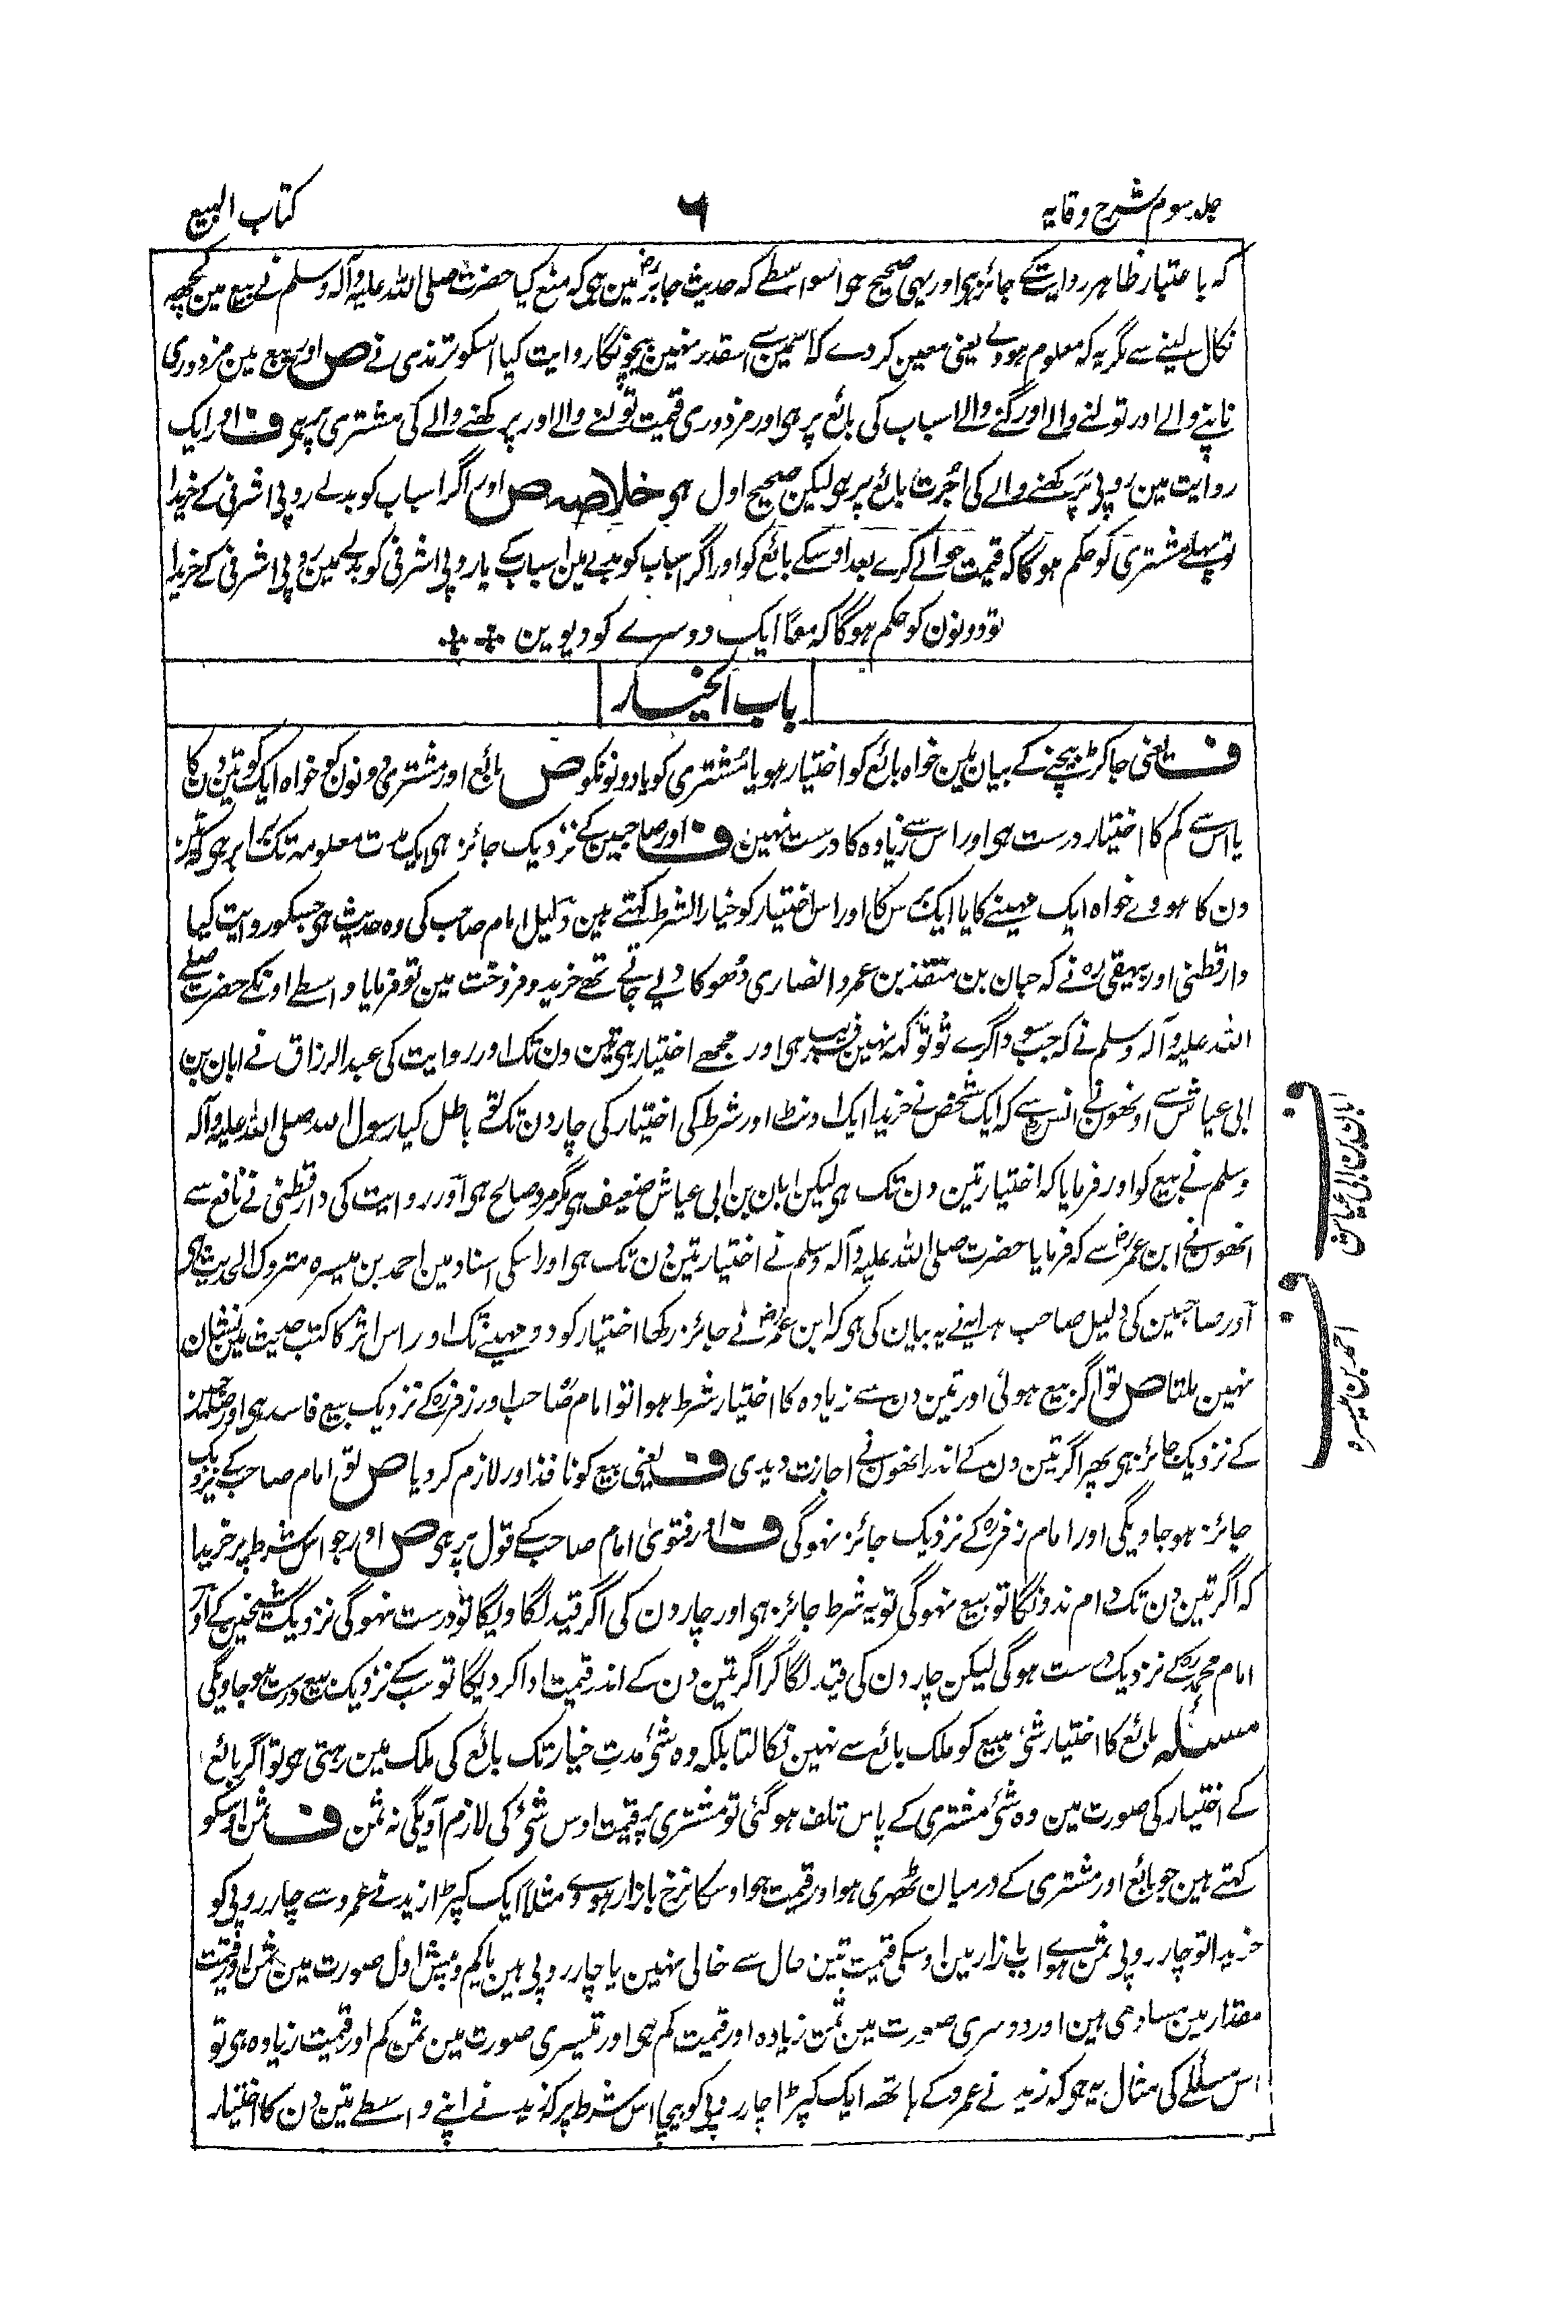 جلد سوم شرح وقایہ
۶
کتاب البیع
کہ باعتبار ظاہر روایت کے جائز ہی اور یہی صحیح ہوا سواسطے کہ حدیث جابرؓ مین ہی کہ منع کیا حضرت صلی اللہ علیہ وآلہ وسلم نے بیع مین کچھ
نکال لینے سے مگر یہ کہ معلوم ہووے یعنی معین کردے کہ اسمین سے اسقدر نہین بیچونگا روایت کیا اسکو ترمذی نے ص اور بیع مین مزدوری
ناپنے والے اور تولنے والے اور گننے والے اسباب کی بائع پر ہی اور مزدوری قیمت تولنے والے اور پرکھنے والے کی مشتری پر ہی ف اور ایک
روایت مین روپی پرکھنے والے کی اجرت بائع پر ہی لیکن صحیح اول ہو خلاصہ ص اور اگر اسباب کو بدلے روپی اشرفی کے خریدا
تو پہلے مشتری کو حکم ہوگا کہ قیمت حوالے کرے بعد اوسکے بائع کو اور اگر اسباب کو بدلے مین اسباب کے یا روپی اشرفی کو بدلے مین روپی اشرفی کے خریدا
تو دونون کو حکم ہوگا کہ معًا ایک دوسرے کو دیوین
باب الخیار
ف یعنی جاکڑ بیچنے کے بیان مین خواہ بائع کو اختیار ہو یا مشتری کو یا دونونکو ص بائع اور مشتری دونون کو خواہ ایک کو تین دن کا
یا اس سے کم کا اختیار درست ہی اور اس سے زیادہ کا درست نہین ف اور صاحبین کے نزدیک جائز ہی ایک مدت معلومہ تک برابر ہی کہ تین
دن کا ہووے خواہ ایک مہینے کا یا ایک برس کا اور اس اختیار کو خیار الشرط کہتے ہین دلیل امام صاحب کی وہ حدیث ہی جسکو روایت کیا
دارقطنی اور بیہقیؒ نے کہ حبان بن منقذ بن عمرو انصاری دھوکا دیے جاتے تھے خرید و فروخت مین تو فرمایا واسطے اونکے حضرت صلے
اللہ علیہ وآلہ وسلم نے کہ جب سودا کرے تو تو کہہ نہین فریب ہی اور مجھے اختیار ہی تین دن تک اور روایت کی عبدالرزاق نے ابان بن
ابی عیاش سے اونھون نے انسؓ سے کہ ایک شخص نے خریدا ایک اونٹ اور شرط کی اختیار کی چار دن تک تو باطل کیا رسول اللہ صلی اللہ علیہ وآلہ
وسلم نے بیع کو اور فرمایا کہ اختیار تین دن تک ہی لیکن ابان بن ابی عیاش ضعیف ہی مگر مرد صالح ہی اور روایت کی دارقطنی نے نافع سے
انھون نے ابن عمرؓ سے کہ فرمایا حضرت صلی اللہ علیہ وآلہ وسلم نے اختیار تین دن تک ہی اور اسکی اسناد مین احمد بن میسرہ متروک الحدیث ہی
اور صاحبین کی دلیل صاحب ہدایہ نے یہ بیان کی ہی کہ ابن عمرؓ نے جائز رکھا اختیار کو دو مہینے تک اور اس اثر کا کتب حدیث مین نشان
نہین ملتا ص تو اگر بیع ہوئی اور تین دن سے زیادہ کا اختیار شرط ہوا تو امام صاحب اور زفرؒ کے نزدیک بیع فاسد ہی اور صاحبین
کے نزدیک جائز ہی پھر اگر تین دن کے اندر انھون نے اجازت دیدی ف یعنی بیع کو نافذ اور لازم کردیا ص تو امام صاحب کے نزدیک
جائز ہوجاویگی اور امام زفرؒ کے نزدیک جائز نہوگی ف اور فتویٰ امام صاحب کے قول پر ہی ص اور جو اس شرط پر خریدا
کہ اگر تین دن تک دام نہ دونگا تو بیع نہوگی تو یہ شرط جائز ہی اور چار دن کی اگر قید لگاویگا تو درست نہوگی نزدیک شیخین کے اور
امام محمدؒ کے نزدیک درست ہوگی لیکن چار دن کی قید لگا کر اگر تین دن کے اندر قیمت ادا کردیگا تو سب کے نزدیک بیع درست ہوجاویگی
مسئلہ بائع کا اختیار شئ مبیع کو ملک بائع سے نہین نکالتا بلکہ وہ شئ مدتِ خیار تک بائع کی ملک مین رہتی ہو تو اگر بائع
کے اختیار کی صورت مین وہ شئ مشتری کے پاس تلف ہوگئی تو مشتری پر قیمت اوس شئ کی لازم آویگی نہ ثمن ف ثمن اوسکو
کہتے ہین جو بائع اور مشتری کے درمیان ٹھہری ہو اور قیمت جو اوسکا نرخ بازار ہووے مثلاً ایک کپڑا زید نے عمرو سے چار روپی کو
خریدا تو چار روپی ثمن ہوے اب بازار مین اوسکی قیمت تین حال سے خالی نہین یا چار روپی ہین یا کم و بیش اول صورت مین ثمن اور قیمت
مقدار مین مساوی ہین اور دوسری صورت مین ثمن زیادہ اور قیمت کم ہی اور تیسری صورت مین ثمن کم اور قیمت زیادہ ہی تو
اس مسئلے کی مثال یہ ہو کہ زید نے عمرو کے ہاتھ ایک کپڑا چار روپی کو بیچا اس شرط پر کہ زید نے اپنے واسطے تین دن کا اختیار
ابان بن ابی عیاش
احمد بن میسرہ